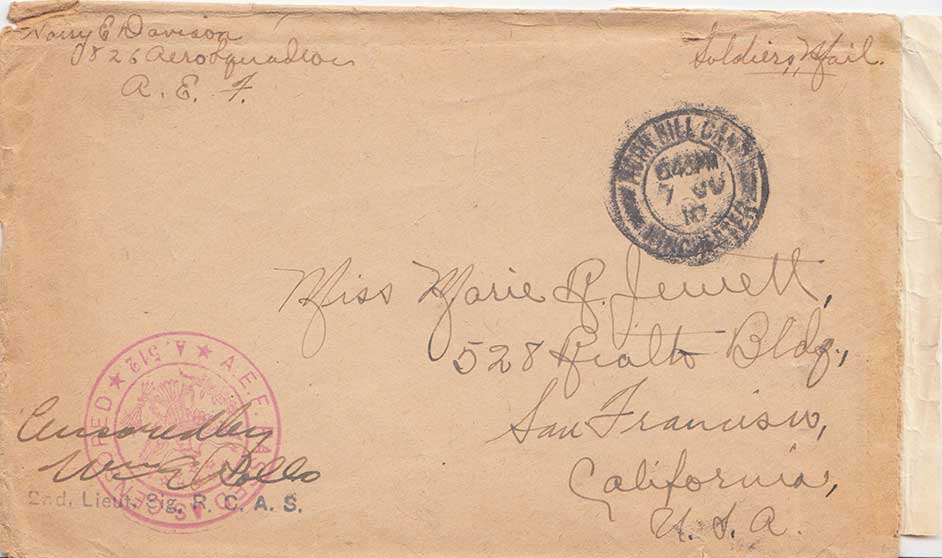 Harry E Davison
1826 Aero Squadron
A. E. F.
Soldiers Mail.
HILL CAMP
6 45 PM
7
WINCHESTER
Miss Marie R. Jewett,
528 Rialto Bldg.,
San Francisco,
California,
U. S. A.
A.E.F.
A.512
Censored by
Wm
2nd. Lieut. Sig. R. C. A. S.